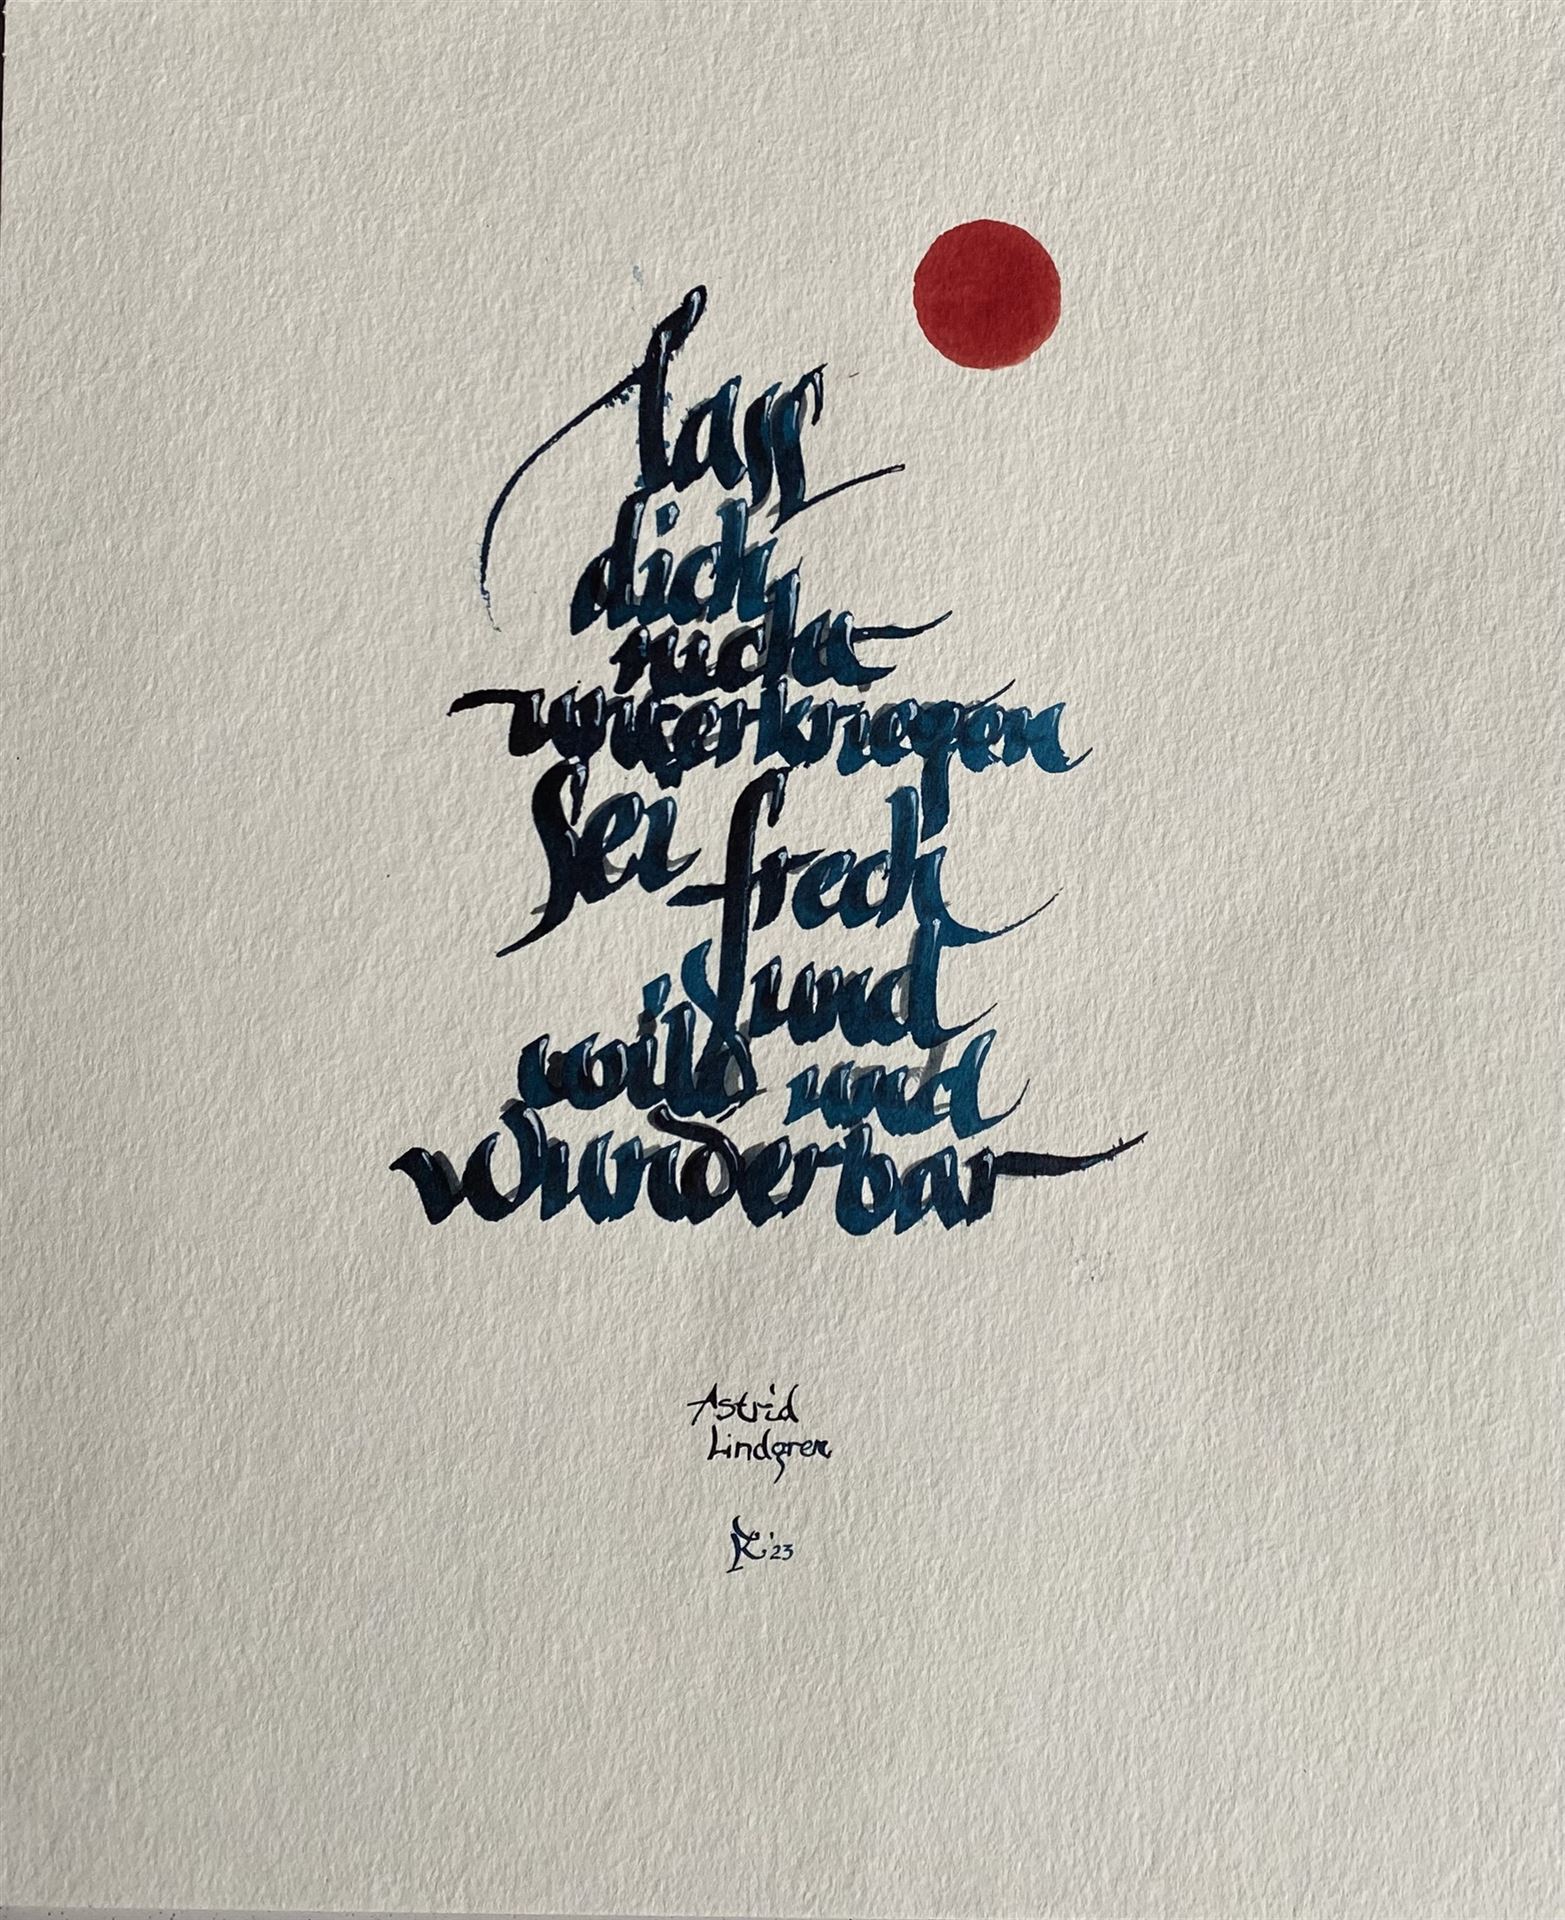 Lass
dich
nicht
unterkriegen
Sei frech
und
wild und
Wunderbar
Astrid
Lindgren
'23